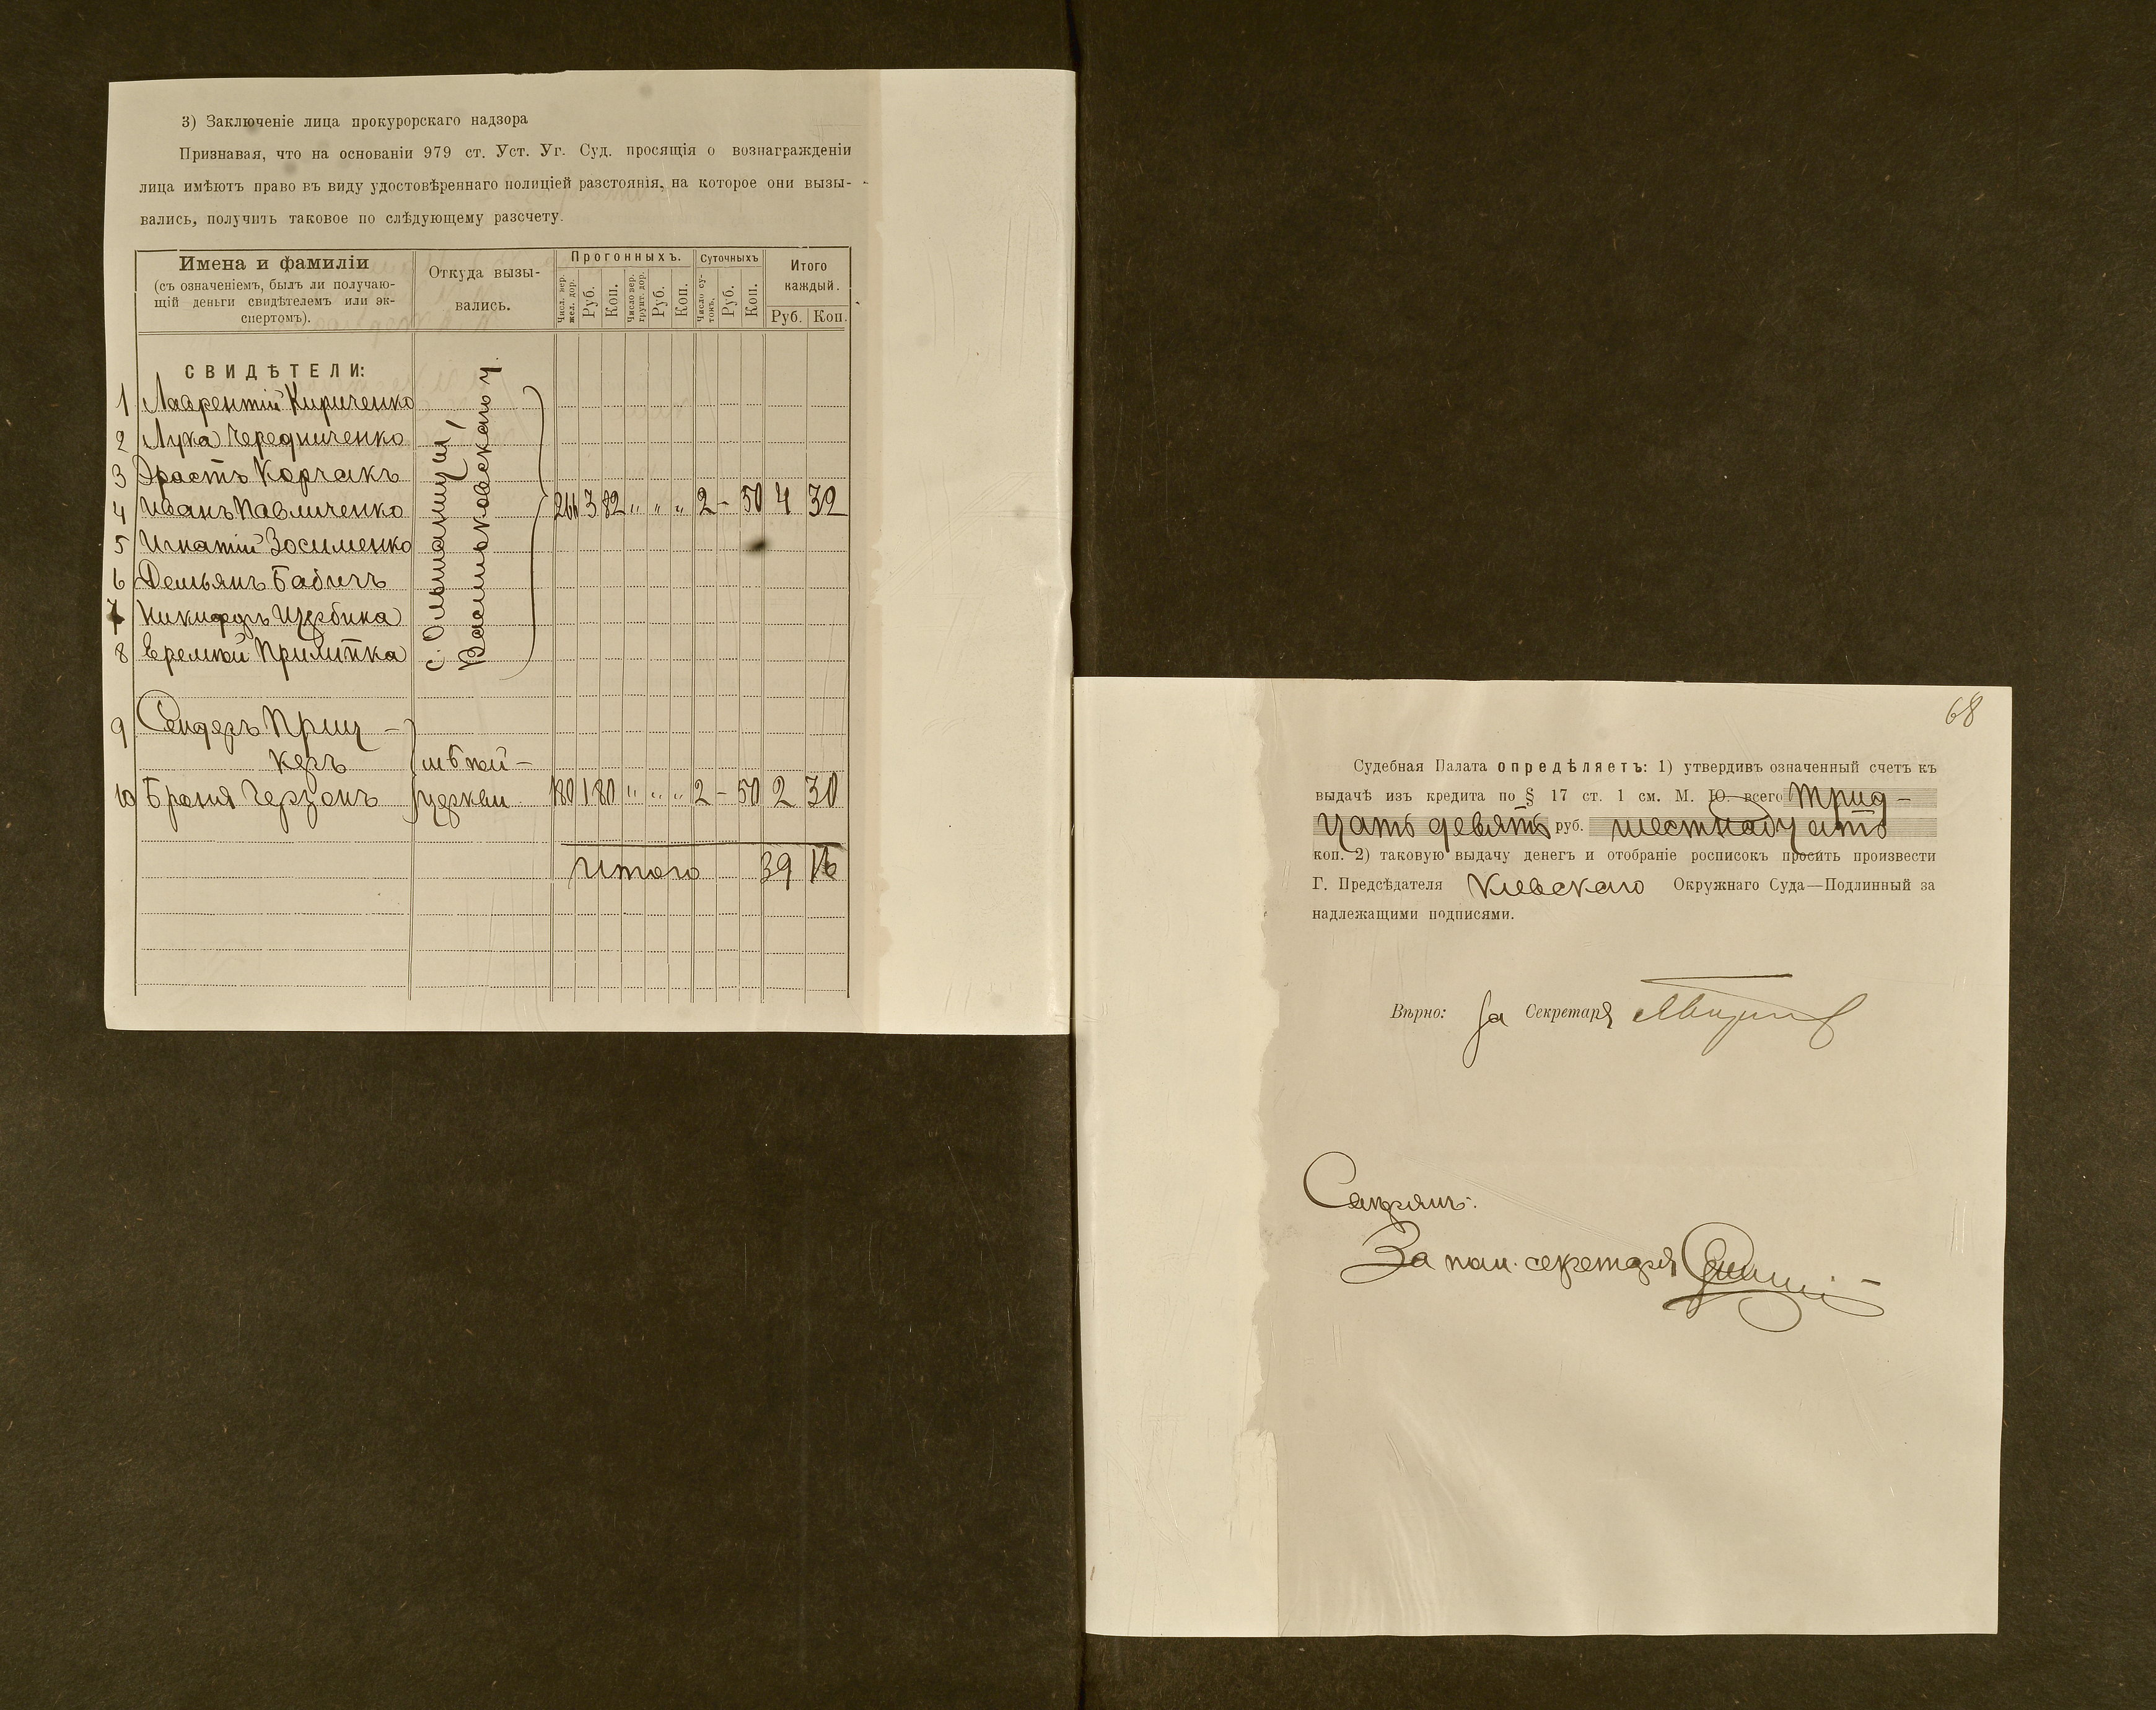 3) Заключеніе лица прокурорскаго надзора
Признавая, что на основаніи 979 ст. Уст. Уг. Суд. просящія о вознагражденіи
лица имѣютъ право въ виду удостовѣреннаго полиціей разстоянія, на которое они вызы-
вались, получить таковое по слѣдующему разсчету.
Имена и фамиліи
(съ означеніемъ, былъ ли получаю-
щій деньги свидѣтелемъ или эк-
спертомъ).
Откуда вызы-
вались.
Прогонныхъ.
Числ. вер. жел. дор.
Руб.
Коп.
Число вер. грунт. дор.
Руб.
Коп.
Суточныхъ
Число су-токъ.
Руб.
Коп.
Итого
каждый.
Руб. Коп.
СВИДѢТЕЛИ:
1 Лаврентій Кириченко
2 Лука Чередниченко
3 Эрастъ Корчакъ
4 Иванъ Павличенко 3 82 " " " 2 - 50 4 32
5 Игнатій Зосименко
6 Демьянъ Бабичъ
7 Никифоръ Щербина
8 Еремѣй Прилипка
с. Ольшаницы,
Васильковскаго у.
9 СендеръПриц-
керъ
10 Браня Герзонъ 180 1 80 " " " 2 - 50 2 30
церкви
Итого 39 16
68
Судебная Палата опредѣляетъ: 1) утвердивъ означенный счетъ къ
выдачѣ изъ кредита по § 17 ст. 1 см. М. Ю. всего Трид-
цать девять руб. шестнадцать
коп. 2) таковую выдачу денегъ и отобраніе росписокъ просить произвести
Г. Предсѣдателя Кіевскаго Окружнаго Суда—Подлинный за
надлежащими подписями.
Вѣрно: за Секретаря
За пом. секретаря